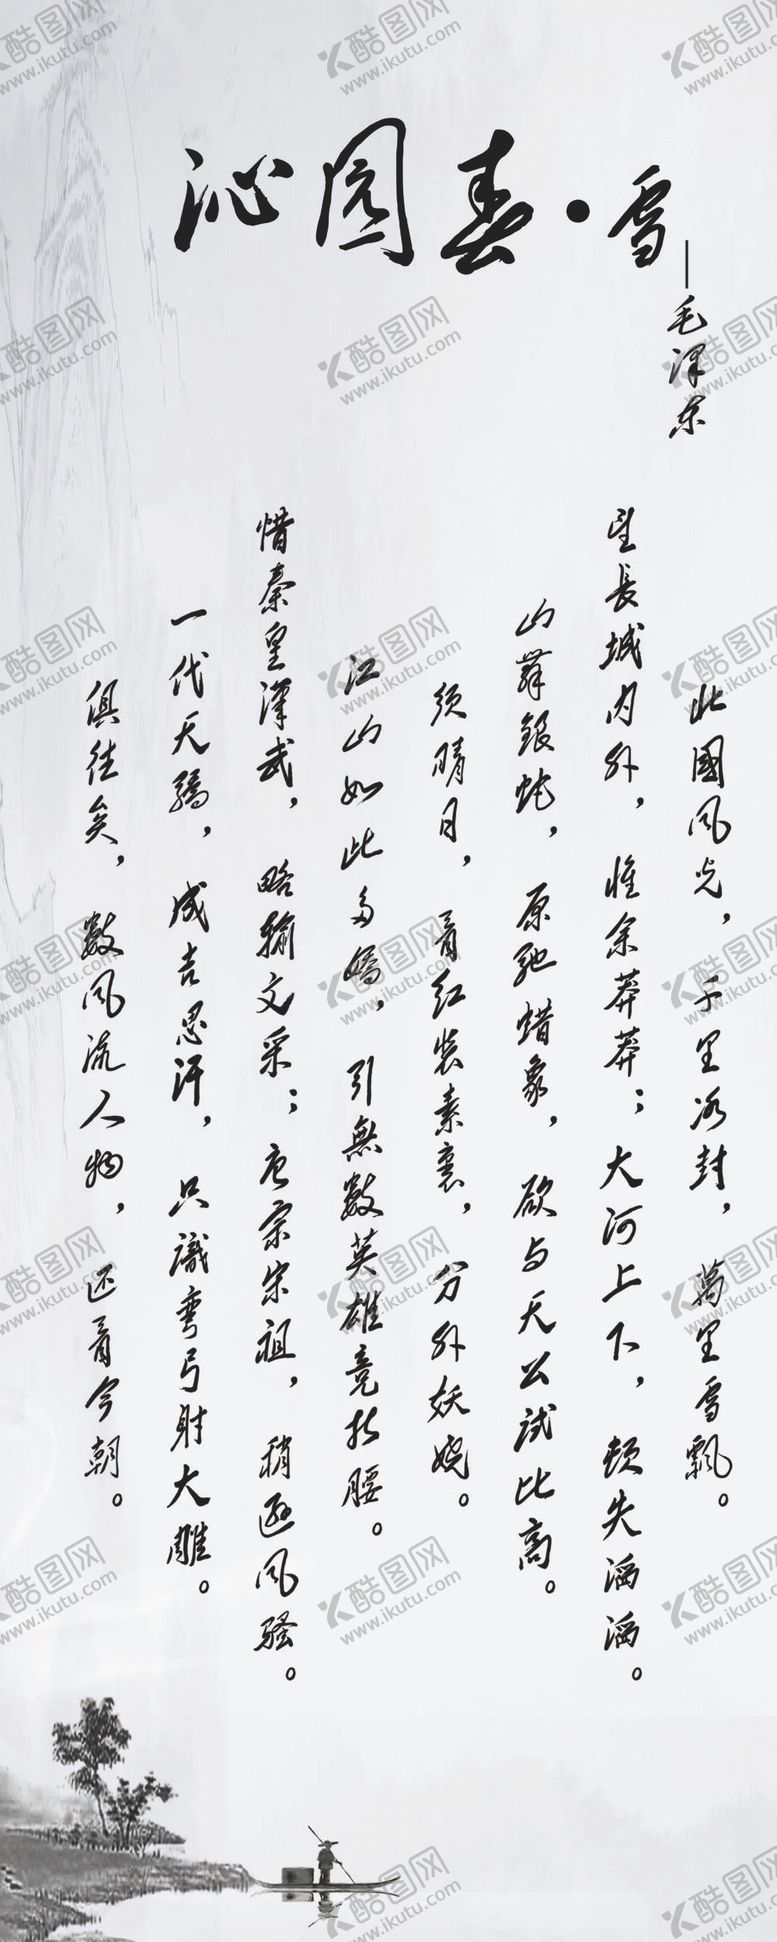 沁园春·雪
—毛泽东
北國风光，千里冰封，萬里雪飄。
望長城内外，惟余莽莽；大河上下，顿失滔滔。
山舞銀蛇，原驰蜡象，欲与天公試比高。
须晴日，看红装素裹，分外妖娆。
江山如此多嬌，引無數英雄竞折腰。
惜秦皇漢武，略输文采；唐宗宋祖，稍逊风骚。
一代天骄，成吉思汗，只識弯弓射大雕。
俱往矣，數风流人物，还看今朝。
酷图网
www.ikutu.com